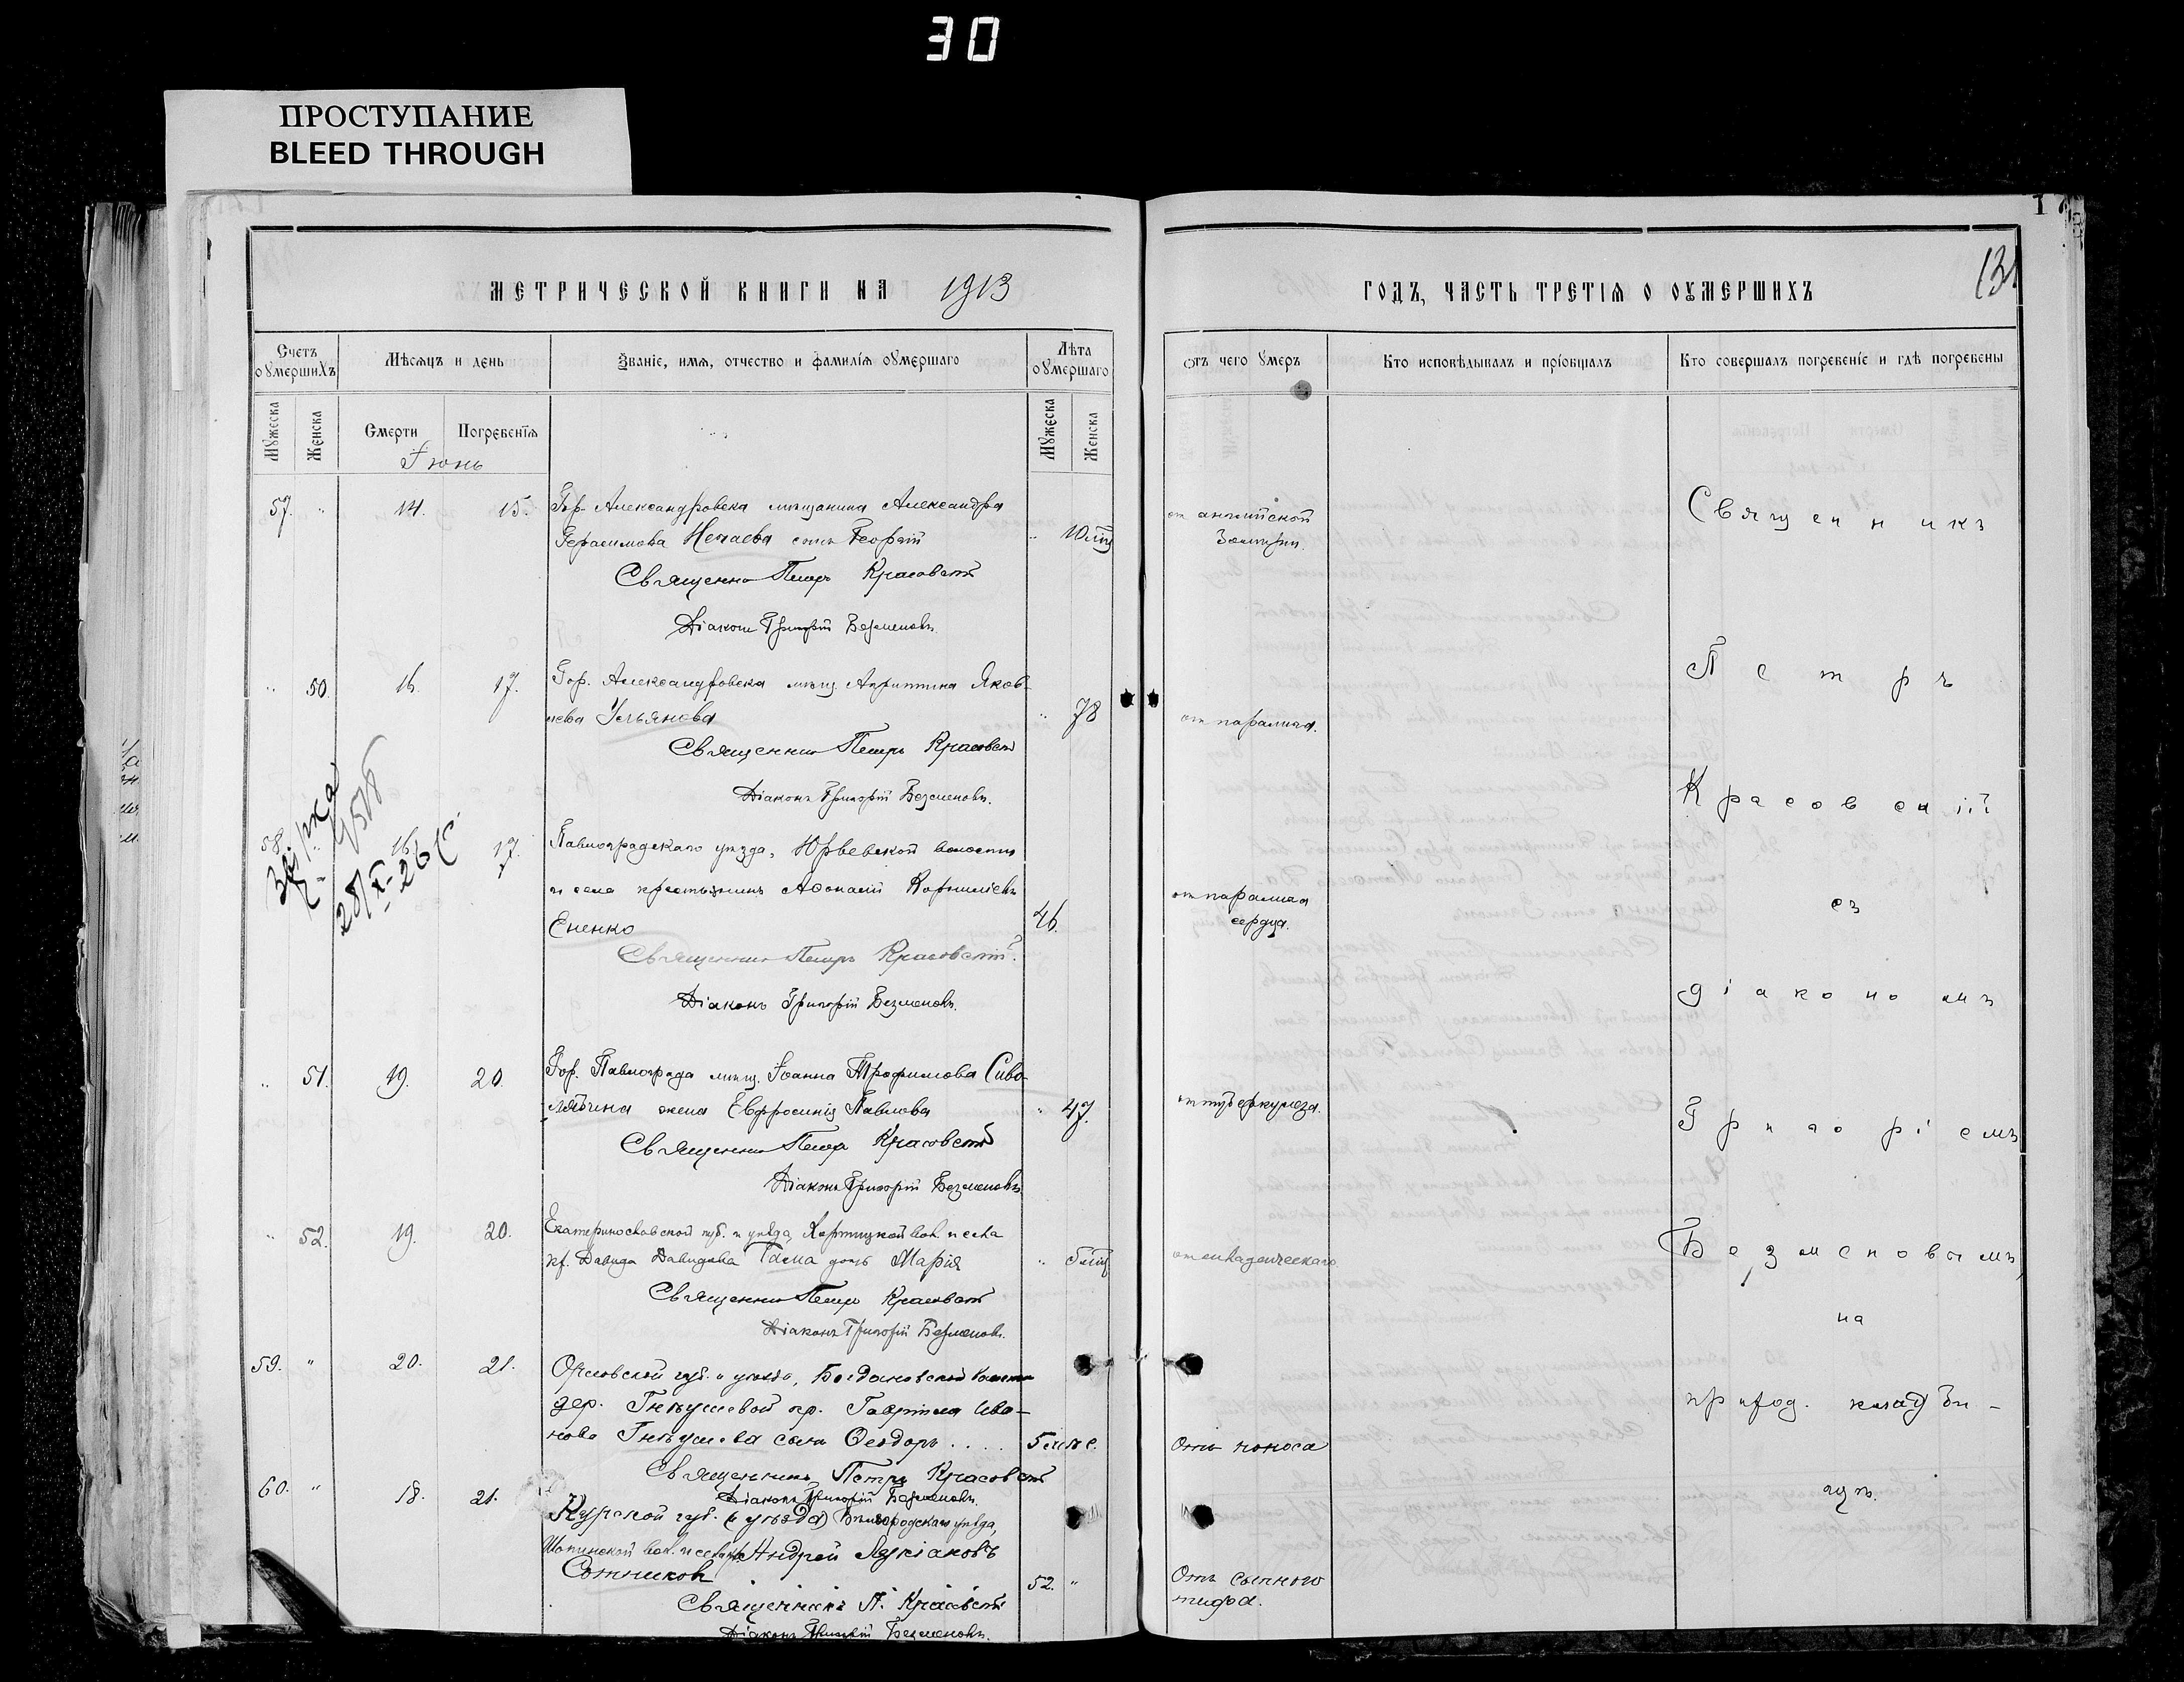 30
ПРОСТУПАНИЕ
BLEED THROUGH
МЕТРИЧЕСКОЙ КНИГИ НА 1913
ГОДЪ, ЧАСТЬ ТРЕТІѦ О ОУМЕРШИХЪ
131
Счетъ оумершихъ
Мѣсяцъ и день
Званіе, имя, отчество и фамилія оумершаго
Лѣта оумершаго
Отъ чего умеръ
Кто исповѣдывалъ и пріобщалъ
Кто совершалъ погребеніе и гдѣ погребены
Мужеска
Женска
Смерти
Погребенія
Мужеска
Женска
Іюнь
57. " 14. 15. Гор. Александровска мѣщанина Александра
Герасимова Нечаева сынъ Георгій
" 10 мѣс
от английской
Священник Петръ Красовскій
Діаконъ Григорій Безменовъ.
" 50. 16. 17. Гор. Александровска мѣщ. Агриппина Яков-
лева Ульянова " 78 от паралича.
Священник Петръ Красовскій
Діаконъ Григорій Безменовъ.
58. 16. 17. Павлоградскаго уѣзда, Юрьевской волости
и села крестьянинъ Аѳонасій Корниліевъ
Ененко 46. от паралича
сердца.
28/X-26
Священник Петръ Красовскій.
Діаконъ Григорій Безменовъ.
" 51. 19. 20. Гор. Павлограда мѣщ. Іоанна Трофимова Сиво-
жена Евфросинія Павлова " 47. от туберкулеза.
Священник Петръ Красовскій
Діаконъ Григорій Безменовъ
" 52. 19. 20. Екатеринославской губ. и уѣзда, Хортицкой вол. и села
кр. Давида Давидова дочь Марія " 5 мѣс
Священник Петръ Красовскій
Діаконъ Григорій Безменовъ.
59. " 20. 21. Орловской губ. и уѣзда, Богдановской волости
дер. Гнѣушевой кр. Гавріила Ива-
нова Гнѣушева сынъ Ѳеодоръ.... 5 мѣс. Отъ поноса
Священникъ Петръ Красовскій
Діаконъ Григорій Безменовъ.
60. " 18. 21. Курской губ. (и уѣзда) Бѣлгородскаго уѣзда,
Шопинской вол. и села кр. Андрей Лукіановъ
Сотников 52. " Отъ сыпного
тифа.
Священникъ П. Красовскій
Діаконъ Григорій Безменовъ.
Священникъ
Петръ
Красовскій
съ
діакономъ
Григоріемъ
Безменовымъ,
на
приход. кладби-
щѣ.